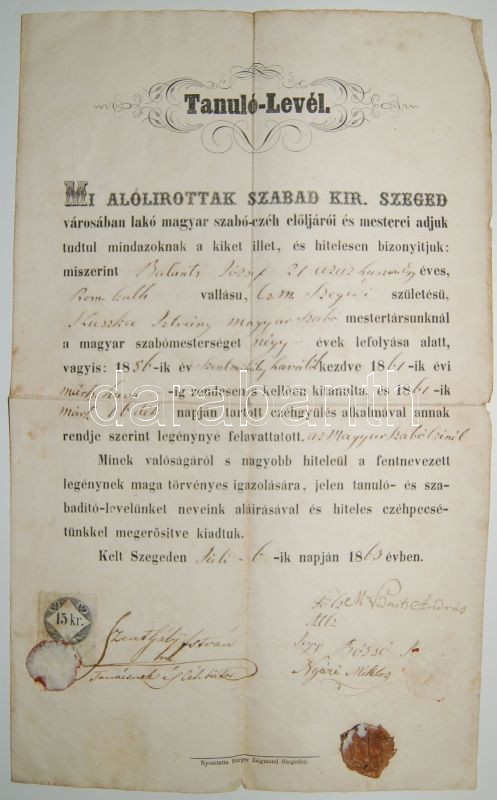 Tanuló-Levél.
MI ALÓLIROTTAK SZABAD KIR. SZEGED
városában lakó magyar szabó-czéh elöljárói és mesterei adjuk
tudtul mindazoknak a kiket illet, és hitelesen bizonyitjuk:
miszerint József 21 azaz huszonegy éves,
Rom. kath vallásu, Szegedi születésü,
Kuszka István magyar szabó mestertársunknál
a magyar szabómesterséget négy évek lefolyása alatt,
vagyis: 1856-ik év kezdve 1861-ik évi
-ig rendesen s kellöen kitanulta, és 1861-ik
napján tartott czéhgyülés alkalmával annak
rendje szerint legénynyé felavattatott. az Magyar
Minek valóságáról s nagyobb hiteleül a fentnevezett
legénynek maga törvényes igazolására, jelen tanuló- és sza-
baditó-levelünket neveink aláirásával és hiteles czéhpecsé-
tünkkel megerősitve kiadtuk.
Kelt Szegeden Juli 6-ik napján 1863 évben.
15 kr.
András
István
Miklos
Nyomtatta Burger Zsigmond Szegeden.
darabanth